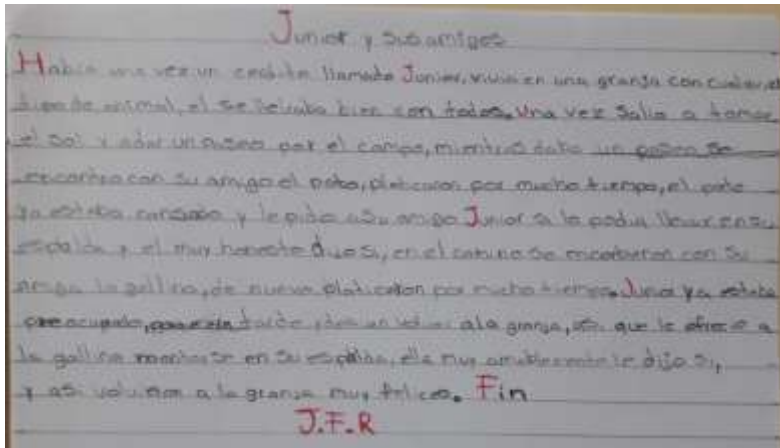 Junior y sus amigos
Habia una vez un cerdito llamado Junior, vivia en una granja con cualquier
tipo de animal, el se llevaba bien con todos. Una vez salio a tomar
el sol y a dar un paseo por el campo, mientras daba un paseo se
encontro con su amigo el pato, platicaron por mucho tiempo, el pato
ya estaba cansado y le pidio a su amigo Junior si lo podia llevar en su
espalda y el muy dijo si, en el camino se encontraron con su
amiga la gallina, de nuevo platicaron por mucho tiempo. Junior ya estaba
preocupado, tarde, a la granja, asi que le ofrecio a
la gallina montarse en su espalda, ella muy amablemente le dijo si,
y asi volvieron a la granja muy felices. Fin
J.F.R